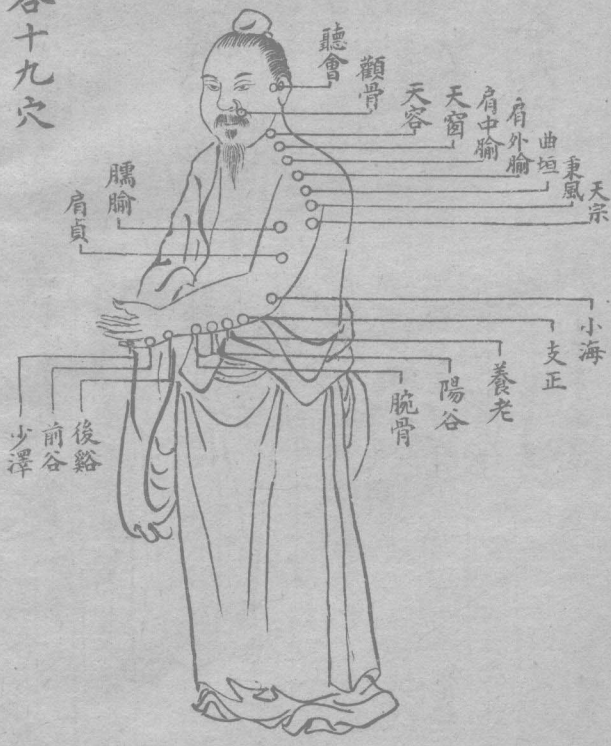 各十九穴
聽會
顴骨
天容
天窗
肩中腧
肩外腧
曲垣
秉風
天宗
臑腧
肩貞
小海
支正
養老
陽谷
腕骨
後谿
前谷
少澤